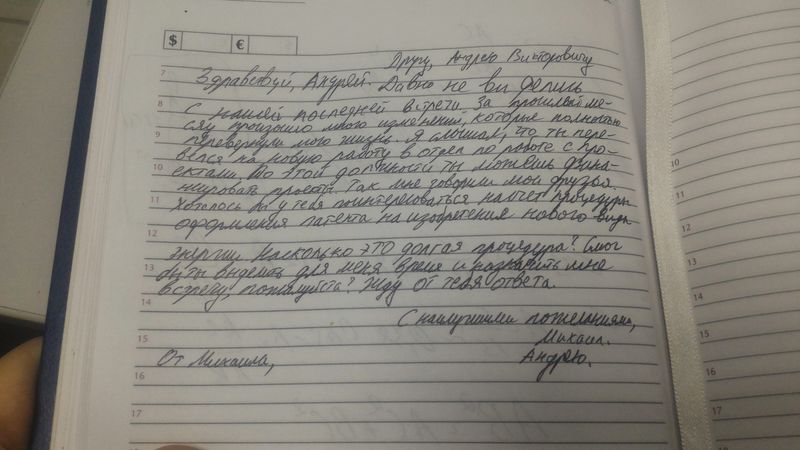 $ €
Другу, Андрею Викторовичу
7 Здравствуй, Андрей. Давно не виделись
8 с нашей последней встречи. За прошлый ме-
сяц произошло много изменений, которые полностью
9 перевернули мою жизнь. Я слышал, что ты пере-
велся на новую работу в отдел по работе с про-
10 ектами. По этой должности ты можешь фина-
нсировать проекты. Так мне говорили мои друзья.
11 Хотелось бы у тебя поинтересоваться насчет процедуры
оформления патента на изобретение нового вида
12
энергии. Насколько это долгая процедура? Смог
13 бы ты выделить для меня время и назначить мне
встречу, пожалуйста? Жду от тебя ответа.
14
С наилучшими пожеланиями,
15 Михаил.
От Михаила, Андрею.
16
17
10
11
12
13
14
15
16
17